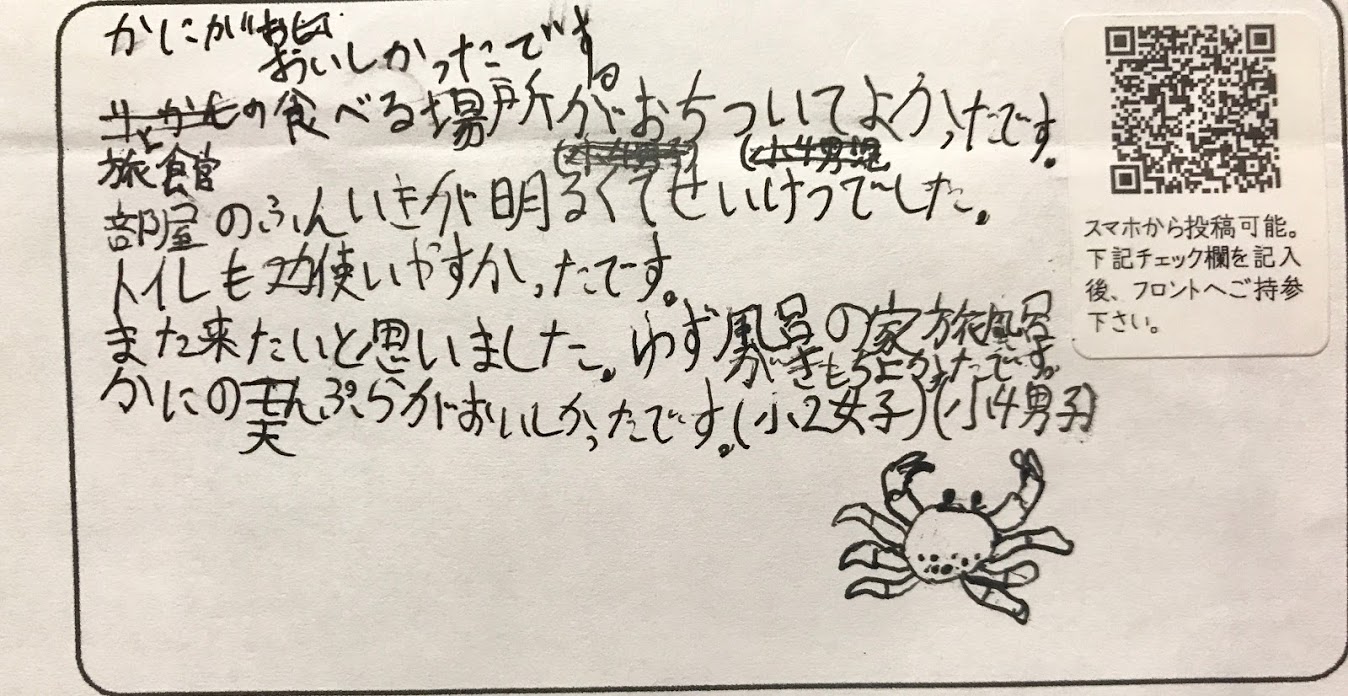 かにが
おいしかったです。
の食べる場所がおちついてよかったです。
旅館
部屋のふんいきが明るくてせいけつでした。
トイレも使いやすかったです。
また来たいと思いました。ゆず風呂の家族風呂
がきもちよかったです。
かにの天ぷらがおいしかったです。(小2女子)(小4男子)
スマホから投稿可能。
下記チェック欄を記入
後、フロントへご持参
下さい。